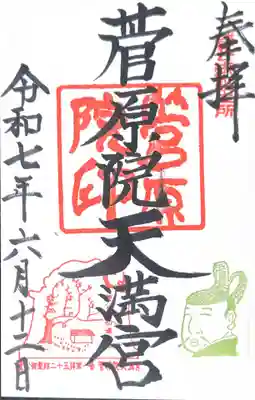 奉拝
菅原院天満宮
菅原
院印
令和七年六月十二日